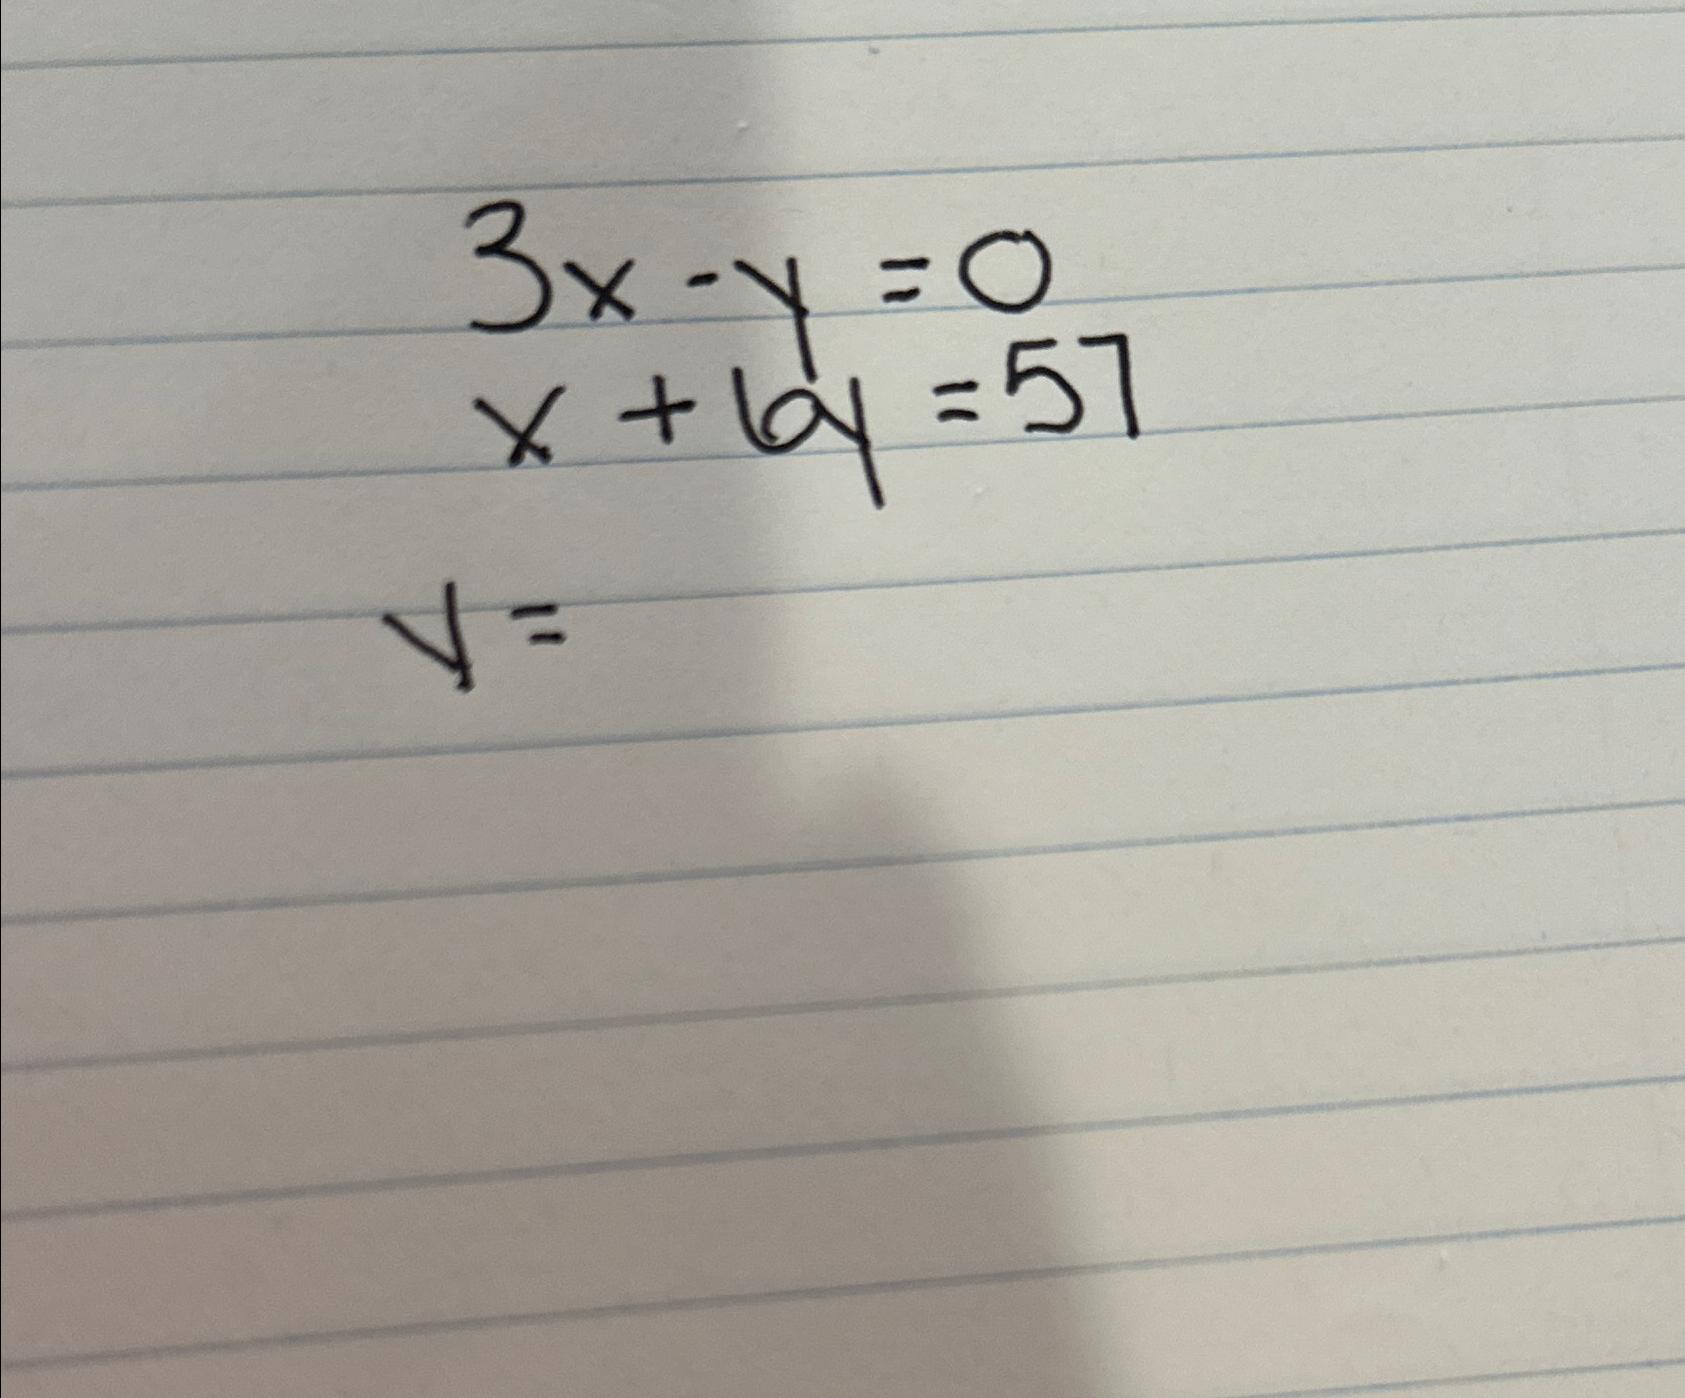 3x - y = 0
x + 6y = 57
y =